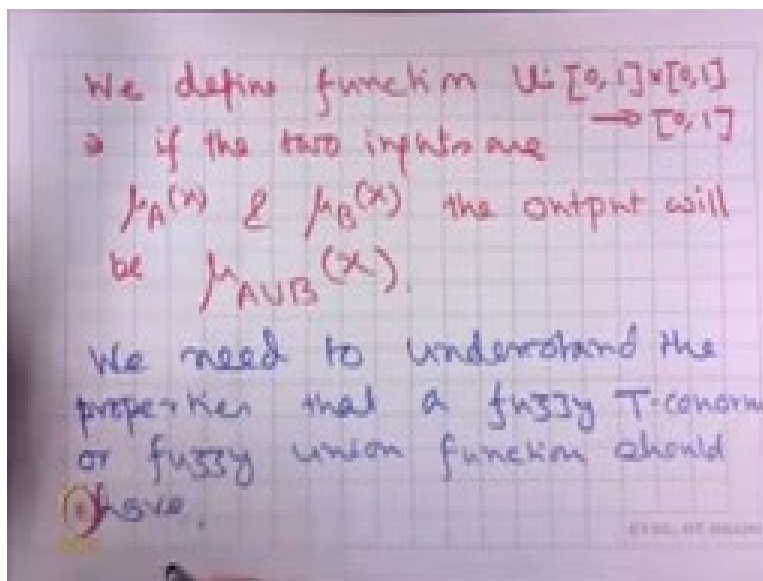 We define function U: [0,1]×[0,1]
→ [0,1]
∋ if the two inputs are
μ_A(x) & μ_B(x) the output will
be μ_A∪B(x).
We need to understand the
properties that a fuzzy T-conorm
or fuzzy union function should
have.